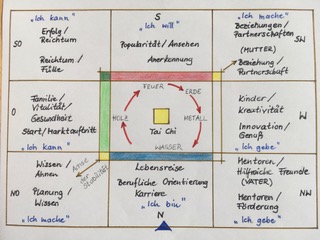 "Ich kann"
SO
Erfolg/
Reichtum
Reichtum/
Fülle
S
"Ich will"
Popularität/Ansehen
Anerkennung
"Ich mache"
Beziehungen/
Partnerschaften
SW
(MUTTER)
Beziehung/
Partnerschaft
O
Familie/
Vitalität/
Gesundheit
Start/Marktauftritt
"Ich kann"
FEUER
ERDE
HOLZ
METALL
Tai Chi
WASSER
Kinder/
Kreativität
W
Innovation/
Genuß
"Ich gebe"
Wissen/
Ahnen
Achse
der Stabilität
NO
Planung/
Wissen
"Ich mache"
Lebensreise
Berufliche Orientierung
Karriere
"Ich bin"
N
Mentoren/
Hilfreiche Freunde
(VATER)
NW
Mentoren/
Förderung
"Ich gebe"